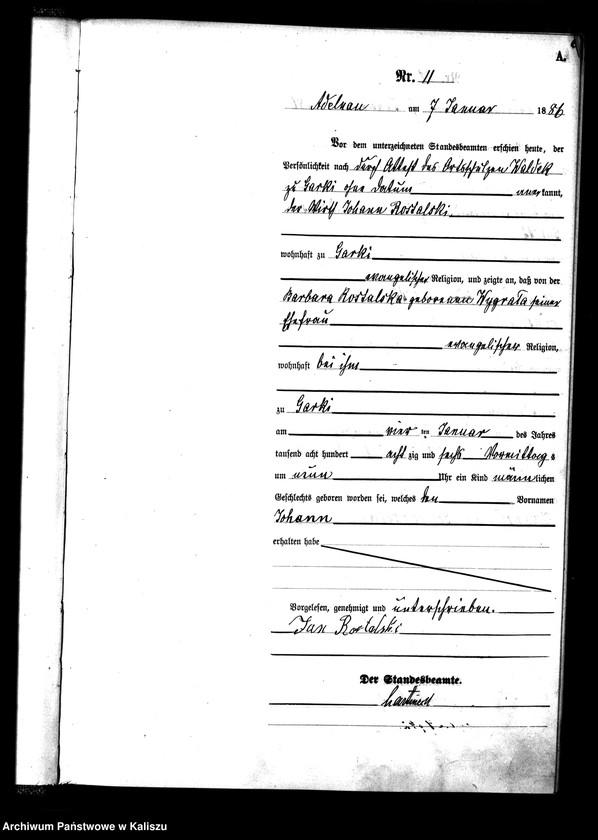 A.
Nr. 11
Adelnau am 7 Januar 1886
Vor dem unterzeichneten Standesbeamten erschien heute, der
Persönlichkeit nach durch Attest des Ortsschulzen Waldek
zu Garki ohne Datum anerkannt,
der Wirth Johann Rostalski.
wohnhaft zu Garki
evangelischer Religion, und zeigte an, daß von der
Barbara Rostalska geborenen Wygrala seiner
Ehefrau
evangelischer Religion,
wohnhaft bei ihm
zu Garki
am vier ten Januar des Jahres
tausend acht hundert acht zig und sechs Vormittags
um neun Uhr ein Kind männlichen
Geschlechts geboren worden sei, welches den Vornamen
Johann
erhalten habe
Vorgelesen, genehmigt und unterschrieben.
Jan Rostalski
Der Standesbeamte.
Archiwum Państwowe w Kaliszu